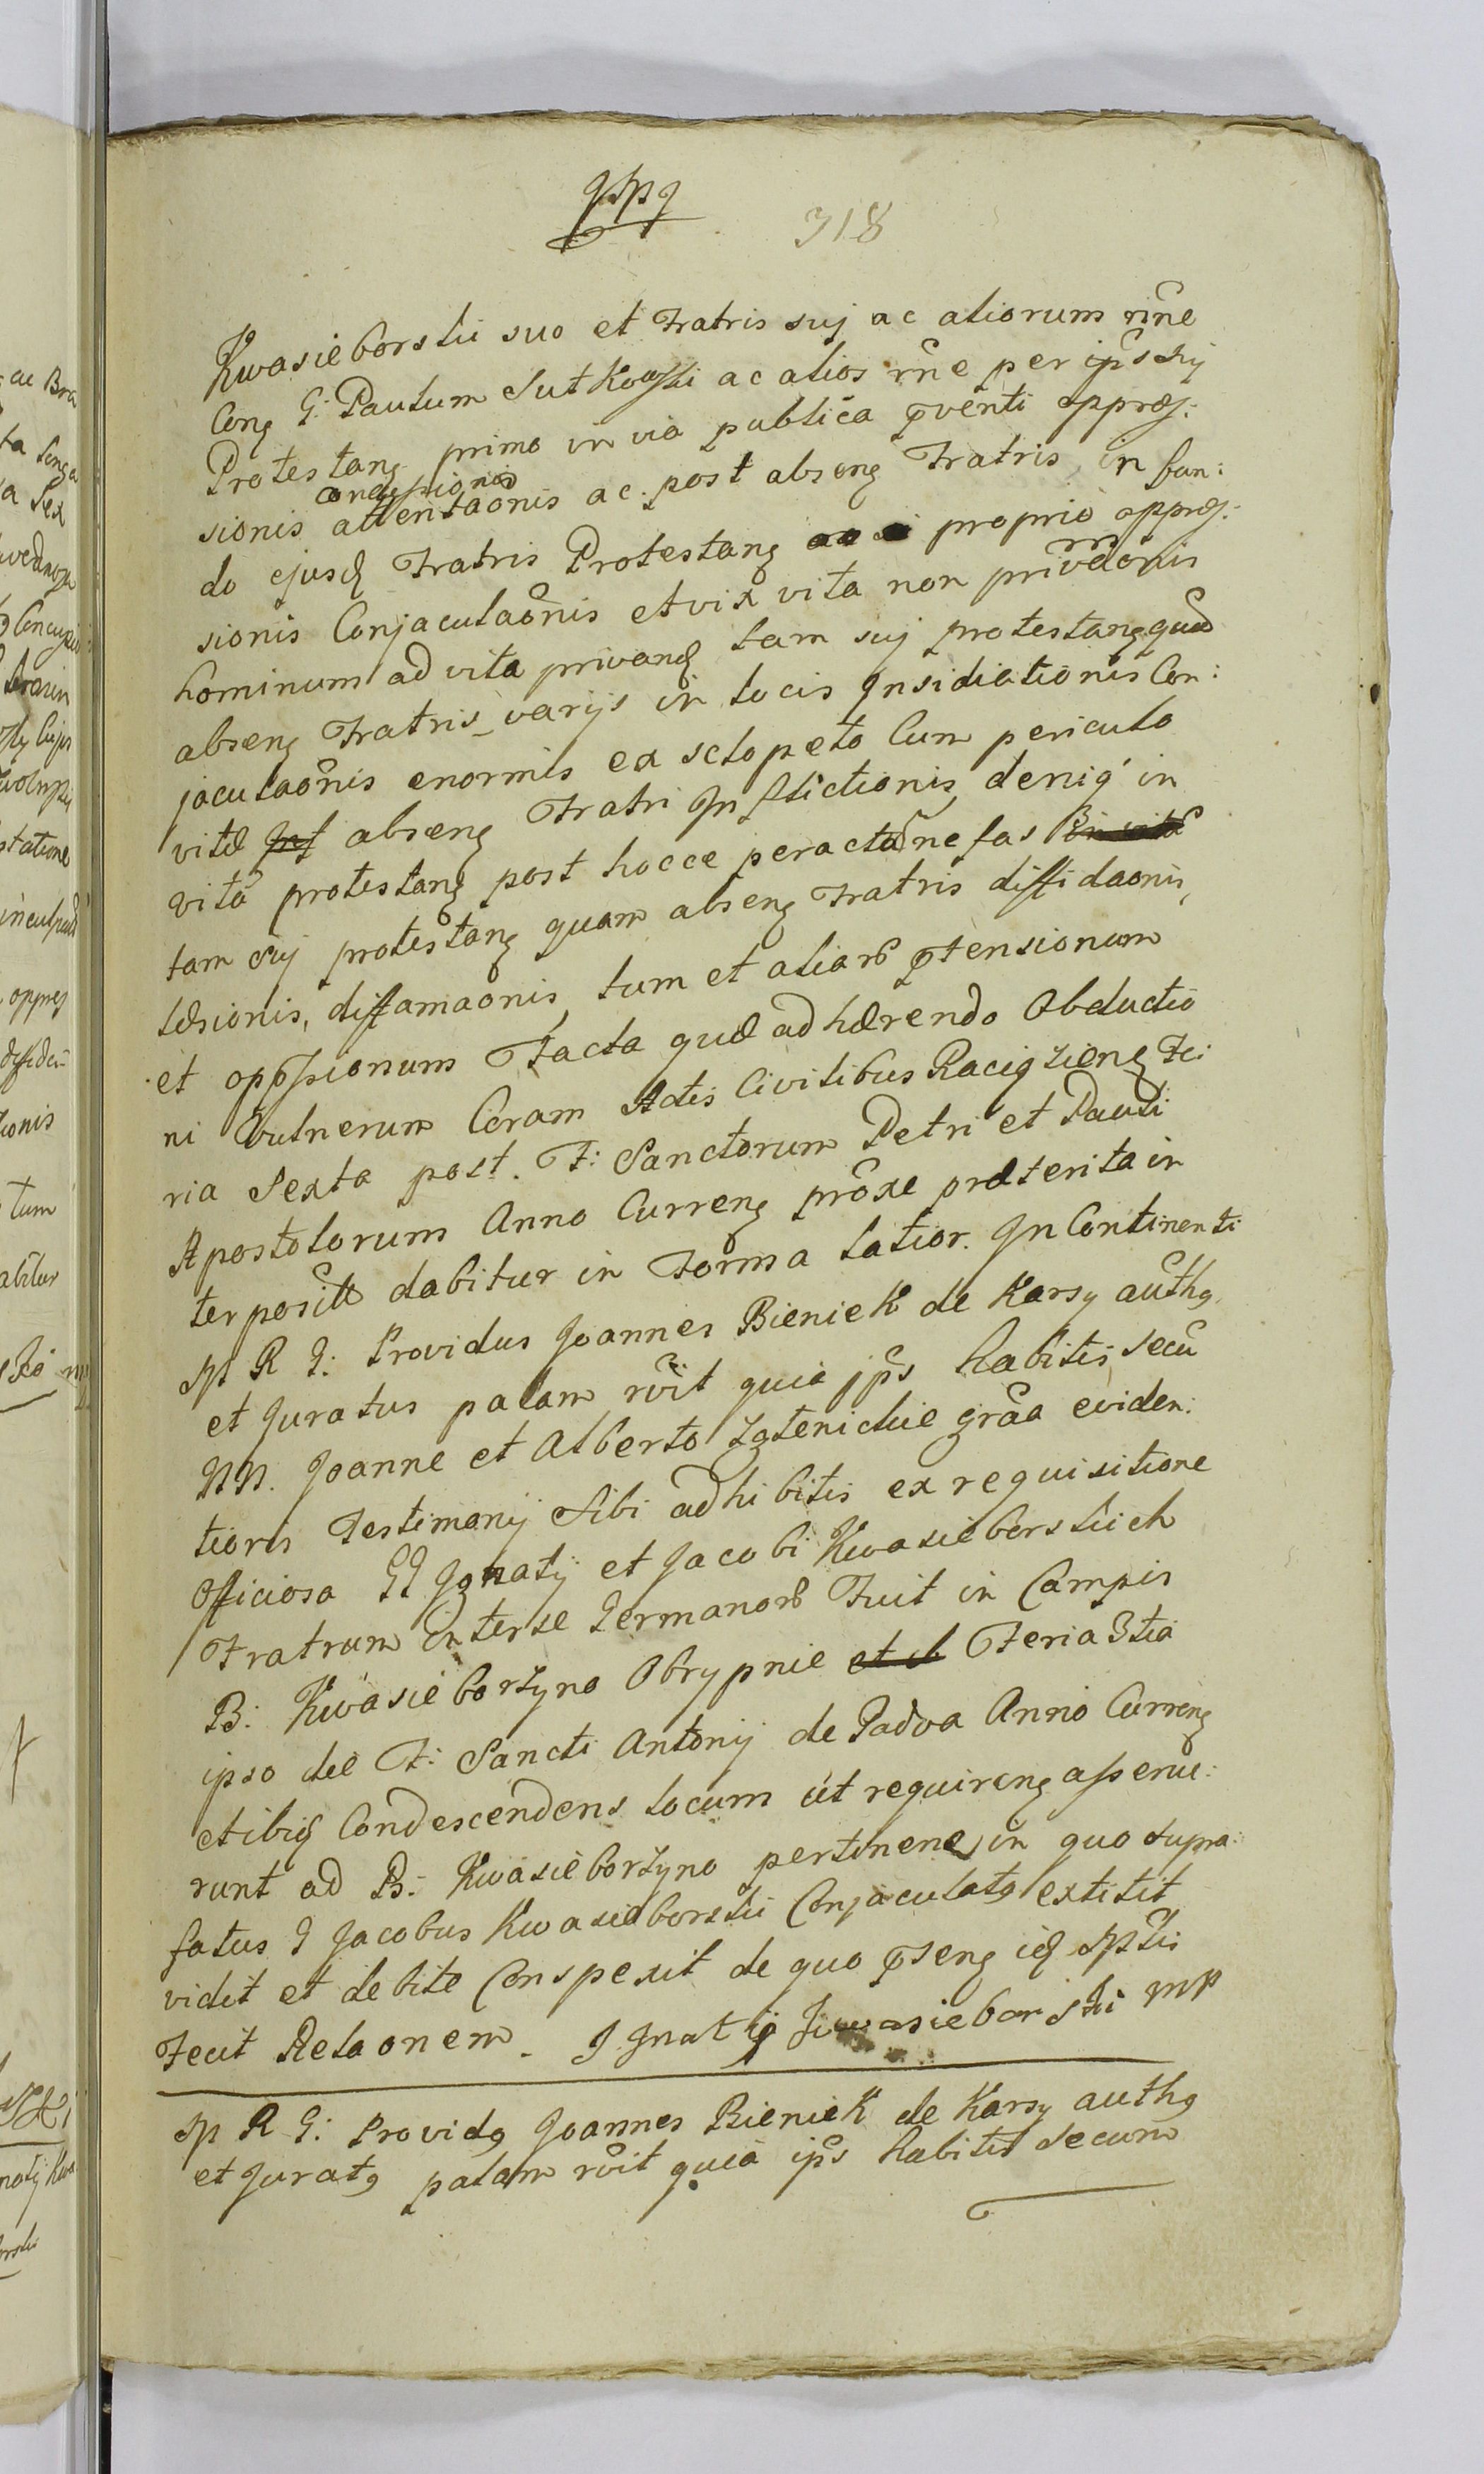 318
Kwasieborski suo et Fratris sui ac aliorum nñe
Conȝ G: Paulum Sutkowski ac alios rñe per ipȝ Suj
Protestanȝ primo in via publica pventi oppres:
condessionis
sionis attentaonis ac post absenȝ Fratris, in fun:
do ejusd Fratris Protestanȝ proprio oppres:
sionis Conjaculaonis et vix vita non privaonis
hominum ad vita privand tam suj protestanȝ quam
absenȝ Fratris varijs in locis Insidiationis Con:
jaculaonis enormis ex sclopeto Cum periculo
vitæ absenȝ Fratri Inflictionis, deniq in
vitã protestanȝ post hocce peractũ nefas
tam Suj protestanȝ quam absenȝ Fratris diffidaonis,
læsionis, diffamaonis, tum et aliarũ ptensionum
et oppssionum Facta quæ adhærendo Obductio
ni Vulnerum Coram Actis Civilibus Raciązienȝ Fe:
ria Sexta post. F: Sanctorum Petri et Pauli
Apostolorum Anno Currenȝ proxe præterita in
terposite dabitur in Forma latior. In Continenti
SP R G: Providus Joannes Bieniek de Karsy auth9
et Juratus palam rõit quia ips habitis secũ
NN. Joanne et Alberto Zglenickie grãa eviden:
tioris Testimonij Sibi adhibitis ex requisitione
Officiosa GG Ignatij et Jacobi Kwasieborskich
Fratrum interse Germanorũ Fuit in Campis
B: Kwasieborzyno Obrypnie et Feria 3tia
ipso die F: Sancti Antonij de Padva Anno Currenȝ
et ibiq Condescendens locum ut requirenȝ asserue:
runt ad B: Kwasieborzyno pertinenȝ, in quo supra:
fatus G Jacobus Kwasieborski Conjaculat9 extitit
vidit et debite Conspexit de quo psenȝ id SPtis
Fecit Relaonem. Ignatÿ Kwasieborski mp
SP R G: Provid9 Joannes Bieniek de Karsy auth9
et Jurat9 palam rõit quia ips habitis secum